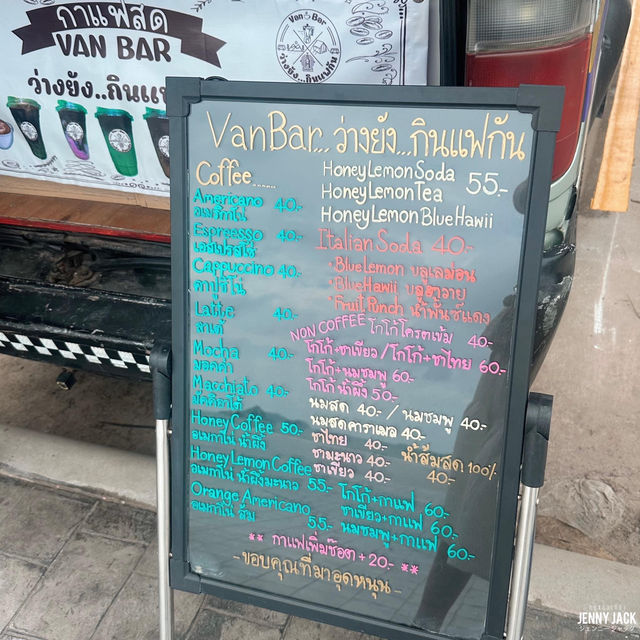 กาแฟสด
VAN BAR
Van Bar
ว่างยัง..กินแฟกัน
VanBar... ว่างยัง...กินแฟกัน
Coffee......
Americano 40.-
อเมริกาโน่
Espresso 40.-
เอสเปรสโซ่
Cappuccino 40.-
คาปูชิโน่
Latte 40.-
ลาเต้
Mocha 40.-
มอคค่า
Macchiato 40.-
มัคคิอาโต้
Honey Coffee 50.-
อเมกาโน่ น้ำผึ้ง
Honey Lemon Coffee
อเมกาโน่ น้ำผึ้งมะนาว 55.-
Orange Americano
อเมกาโน่ ส้ม 55.-
Honey Lemon Soda
Honey Lemon Tea 55.-
Honey Lemon Blue Hawii
Italian Soda 40.-
• Blue Lemon บลูเลม่อน
• Blue Hawii บลูฮาวาย
• Fruit Punch น้ำพันช์แดง
NON COFFEE โกโก้โครตเข้ม 40.-
โกโก้+ชาเขียว / โกโก้+ชาไทย 60.-
โกโก้+นมชมพู 60.-
โกโก้ น้ำผึ้ง 50.-
นมสด 40.- / นมชมพู 40.-
นมสดคาราเมล 40.-
ชาไทย 40.-
ชามะนาว 40.-
ชาเขียว 40.-
น้ำส้มสด 100%
40.-
โกโก้+กาแฟ 60.-
ชาเขียว+กาแฟ 60.-
นมชมพู+กาแฟ 60.-
** กาแฟเพิ่มช๊อต +20.- **
- ขอบคุณที่มาอุดหนุน -
JENNY JACK